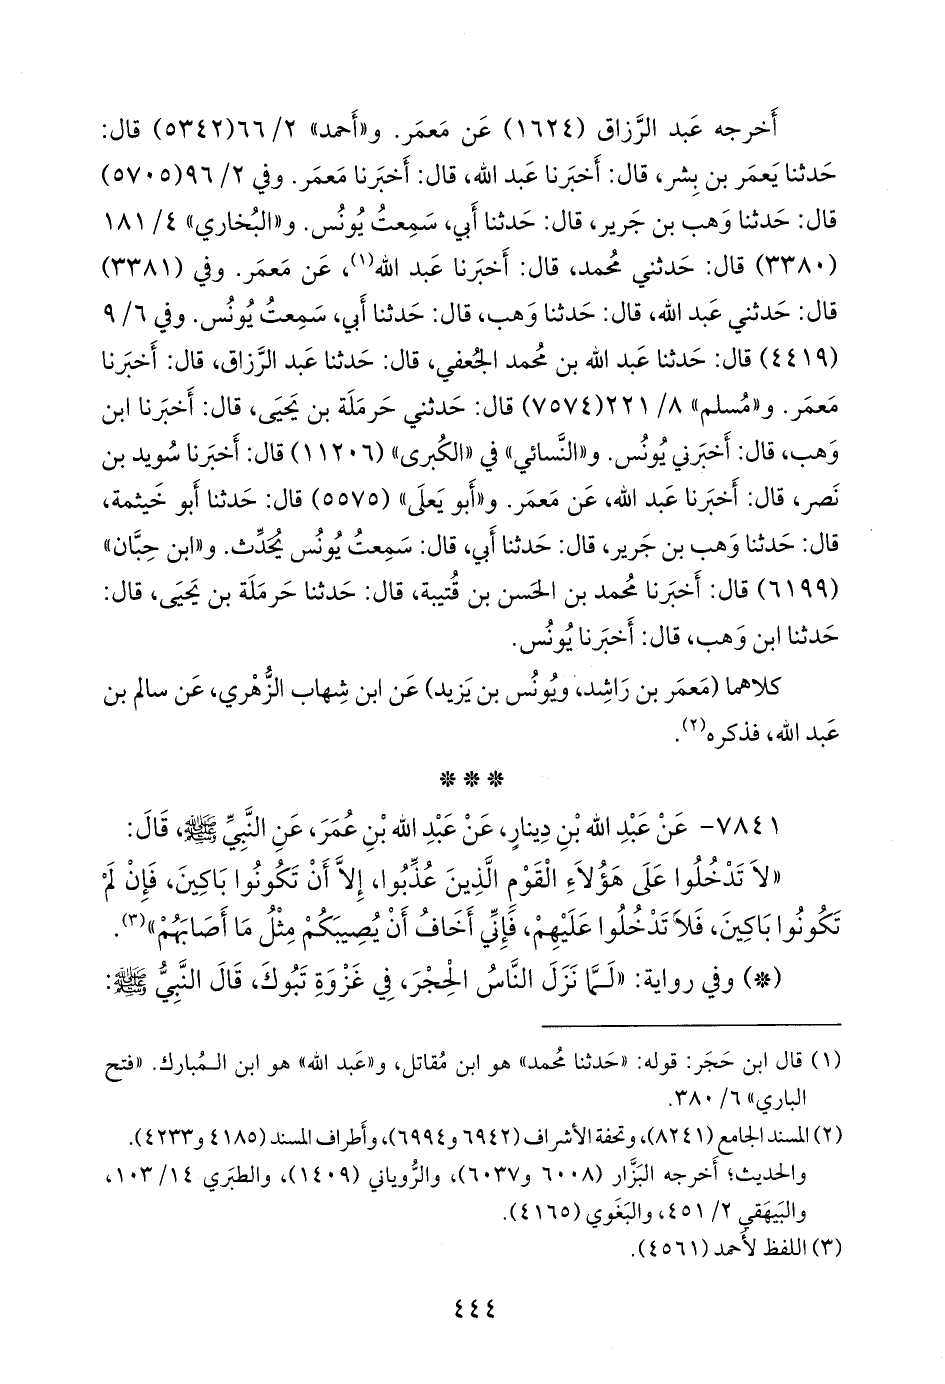 أَخرجه عَبد الرَّزاق (١٦٢٤) عَن مَعمَر. و«أَحمد» ٢/ ٦٦(٥٣٤٢) قال:
حَدثنا يَعمَر بن بِشر، قال: أَخبَرنا عَبد الله، قال: أَخبَرنا مَعمَر. وفي ٢/ ٩٦(٥٧٠٥)
قال: حَدثنا وَهب بن جَرير، قال: حَدثنا أَبي، سَمِعتُ يُونُس. و«البُخاري» ٤/ ١٨١
(٣٣٨٠) قال: حَدثني مُحمد، قال: أَخبَرنا عَبد الله(١)، عَن مَعمَر. وفي (٣٣٨١)
قال: حَدثني عَبد الله، قال: حَدثنا وَهب، قال: حَدثنا أَبي، سَمِعتُ يُونُس. وفي ٦/ ٩
(٤٤١٩) قال: حَدثنا عَبد الله بن مُحمد الجُعفي، قال: حَدثنا عَبد الرَّزاق، قال: أَخبَرنا
مَعمَر. و«مُسلم» ٨/ ٢٢١(٧٥٧٤) قال: حَدثني حَرمَلَة بن يَحيَى، قال: أَخبَرنا ابن
وَهب، قال: أَخبَرني يُونُس. و«النَّسائي» في «الكُبرى» (١١٢٠٦) قال: أَخبَرنا سُويد بن
نَصر، قال: أَخبَرنا عَبد الله، عَن مَعمَر. و«أَبو يَعلَى» (٥٥٧٥) قال: حَدثنا أَبو خَيثمة،
قال: حَدثنا وَهب بن جَرير، قال: حَدثنا أَبي، قال: سَمِعتُ يُونُس يُحَدِّث. و«ابن حِبَّان»
(٦١٩٩) قال: أَخبَرنا مُحمد بن الحَسن بن قُتيبة، قال: حَدثنا حَرمَلَة بن يَحيَى، قال:
حَدثنا ابن وَهب، قال: أَخبَرنا يُونُس.
كلاهما (مَعمَر بن رَاشِد، ويُونُس بن يَزيد) عَن ابن شِهاب الزُّهْري، عَن سالم بن
عَبد الله، فذكره(٢).
* * *
٧٨٤١- عَنْ عَبْدِ الله بْنِ دِينارٍ، عَنْ عَبْدِ الله بْنِ عُمَرَ، عَنِ النَّبِيِّ ﷺ، قَالَ:
«لاَ تَدْخُلُوا عَلَى هَؤُلاَءِ الْقَوْمِ الَّذِينَ عُذِّبُوا، إِلاَّ أَنْ تَكُونُوا بَاكِينَ، فَإِنْ لَمْ
تَكُونُوا بَاكِينَ، فَلاَ تَدْخُلُوا عَلَيْهِمْ، فَإِنِّي أَخَافُ أَنْ يُصِيبَكُمْ مِثْلُ مَا أَصَابَهُمْ»(٣).
(*) وفي رواية: «لَـمَّا نَزَلَ النَّاسُ الْحِجْرَ، فِي غَزْوَةِ تَبُوكَ، قَالَ النَّبِيُّ ﷺ:
(١) قال ابن حَجَر: قوله: «حَدثنا مُحمد» هو ابن مُقاتل، و«عَبد الله» هو ابن الـمُبارك. «فتح
الباري» ٦/ ٣٨٠.
(٢) المسند الجامع (٨٢٤١)، وتحفة الأشراف (٦٩٤٢ و٦٩٩٤)، وأطراف المسند (٤١٨٥ و٤٢٣٣).
والحديث؛ أَخرجه البَزَّار (٦٠٠٨ و٦٠٣٧)، والرُّوياني (١٤٠٩)، والطبَري ١٤/ ١٠٣،
والبَيهَقي ٢/ ٤٥١، والبَغَوي (٤١٦٥).
(٣) اللفظ لأَحمد (٤٥٦١).
٤٤٤